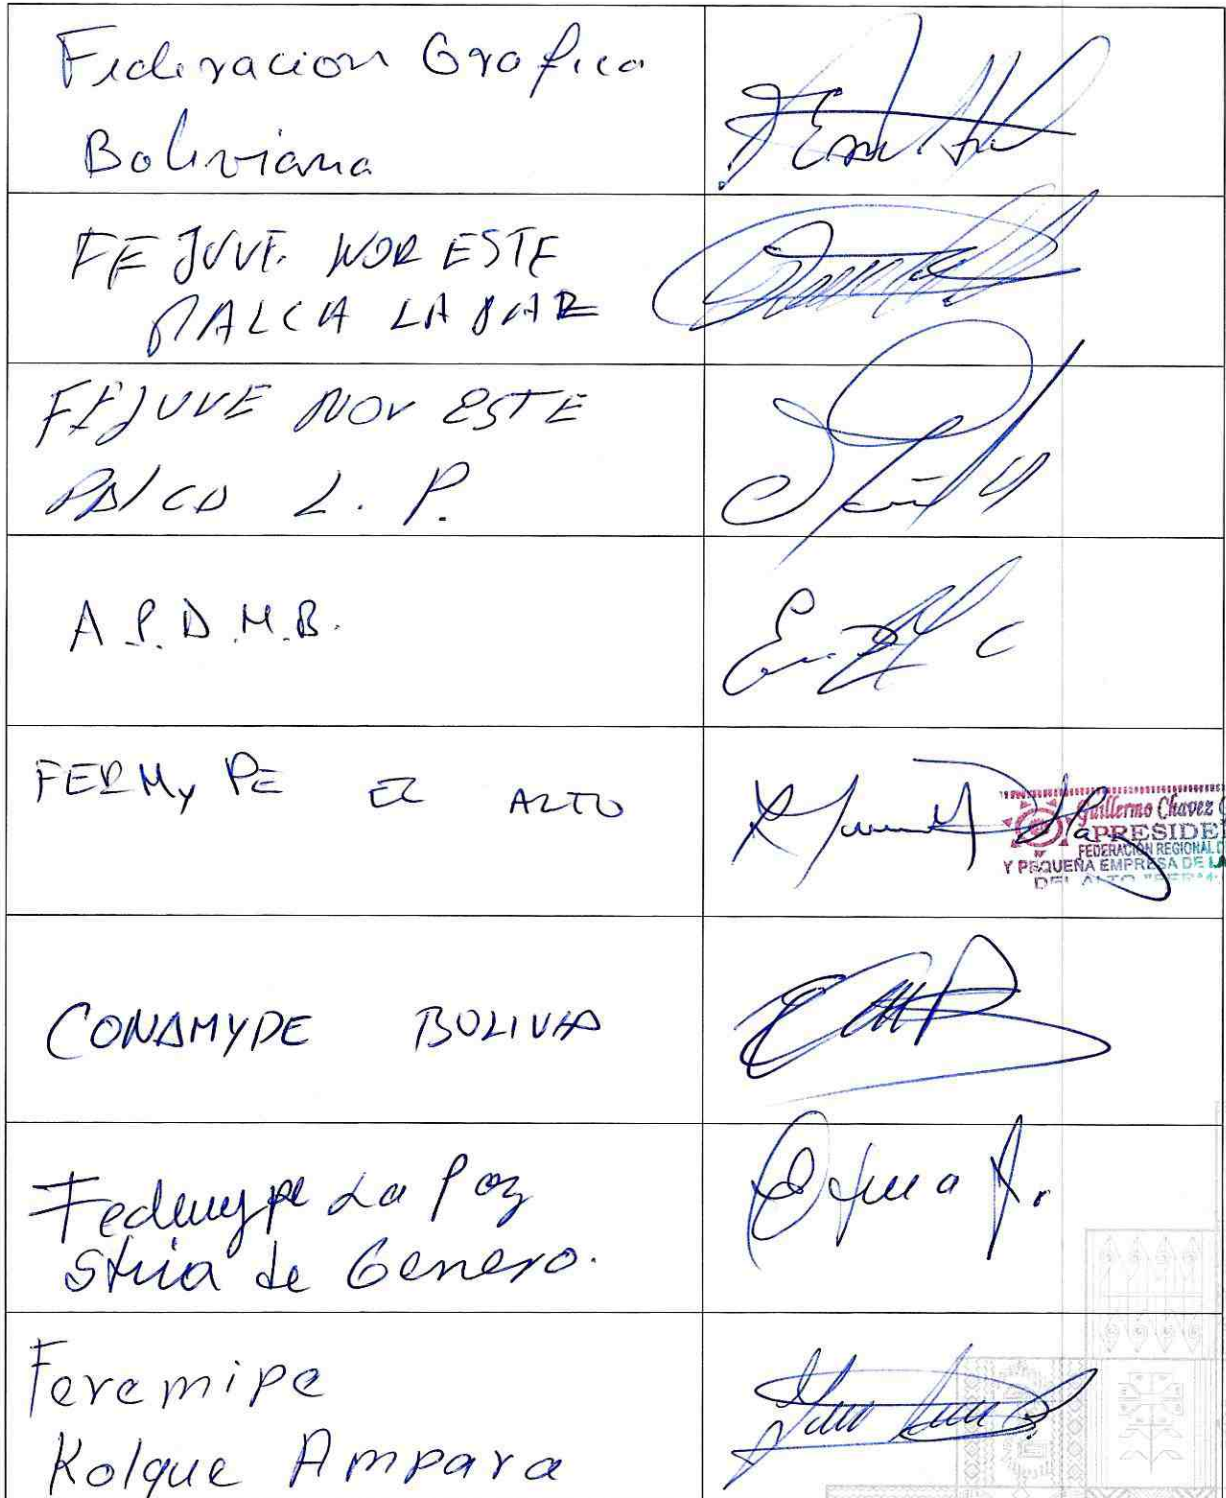 Federacion Grafica
Boliviana
FEJUVE. NOR ESTE
PALCA LA PAZ
FEJUVE NOR ESTE
PALCA L. P.
A.P.D.M.B.
FERMyPE EL ALTO
Guillermo Chavez
PRESIDE
FEDERACIÓN REGIONAL D
Y PEQUEÑA EMPRESA DE LA
DEL ALTO "FERM
CONAMYPE BOLIVIA
Fedemype La Paz
Stria de Genero.
Feremipe
Kolque Ampara